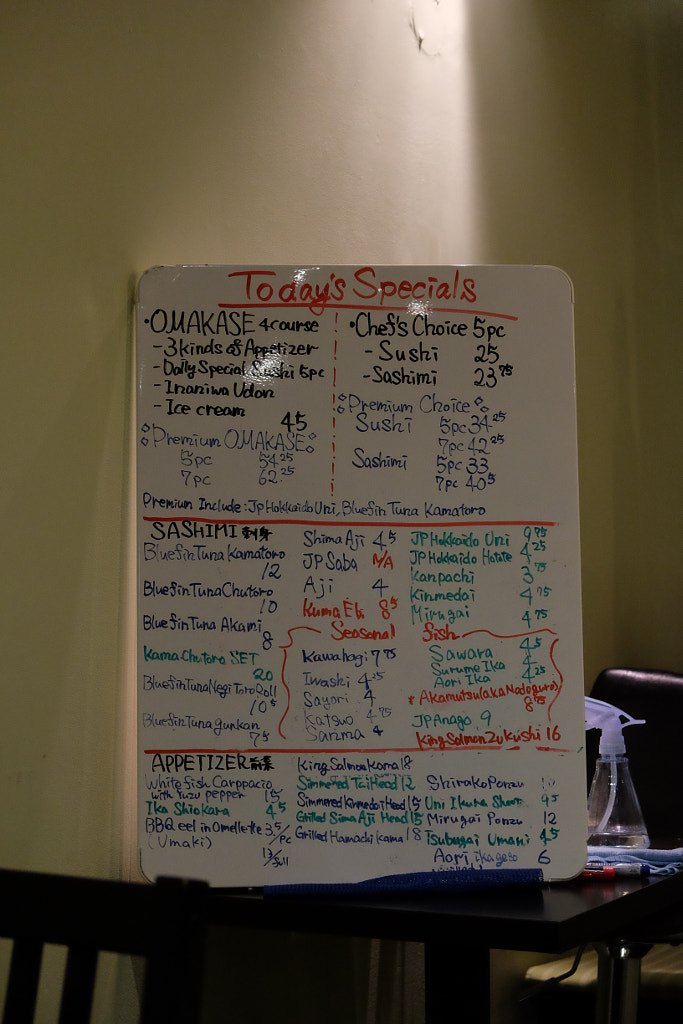 Today's Specials
・OMAKASE 4course
- 3kinds of Appetizer
- Daily Special Sushi 5pc
- Inaniwa Udon
- Ice cream
45
Premium OMAKASE
5pc 54.25
7pc 62.25
・Chef's Choice 5pc
- Sushi 25
- Sashimi 23.75
Premium Choice
Sushi 5pc 34.25
7pc 42.25
Sashimi 5pc 33
7pc 40.5
Premium Include : JP Hokkaido Uni, Bluefin Tuna Kamatoro
SASHIMI 刺身
Bluefin Tuna Kamatoro
12
Bluefin Tuna Chutoro
10
Bluefin Tuna Akami
8
Kama Chutoro SET
20
Bluefin Tuna Negi Toro Roll
10.5
Bluefin Tuna gunkan
7.5
Shima Aji 4.5
JP Saba N/A
Aji 4
Kuma Ebi 8.5
JP Hokkaido Uni 9.75
JP Hokkaido Hotate 4.25
Kanpachi 3.75
Kinmedai 4.75
Mirugai 4.75
Seasonal fish
Kawahagi 7.75
Iwashi 4.25
Sayori 4
Katsuo 4.75
Sanma 4
Sawara 4.5
Surume Ika 4
Aori Ika 4.25
* Akamutsu (aka Nodoguro)
8.75
JP Anago 9
King Salmon Zukushi 16
APPETIZER 前菜
White fish Carppacio
with Yuzu pepper 15
Ika Shiokara 4.5
BBQ eel in Omelette 3.5/pc
(Umaki) 13/full
King Salmon Kama 18
Simmered Tai Head 12
Simmered Kinmedai Head 15
Grilled Sima Aji Head 15
Grilled Hamachi Kama 18
Shirako Ponzu
Uni Ikura Shoot 9.5
Mirugai Ponzu 12
Tsubugai Umani 4.5
Aori ika geso 6